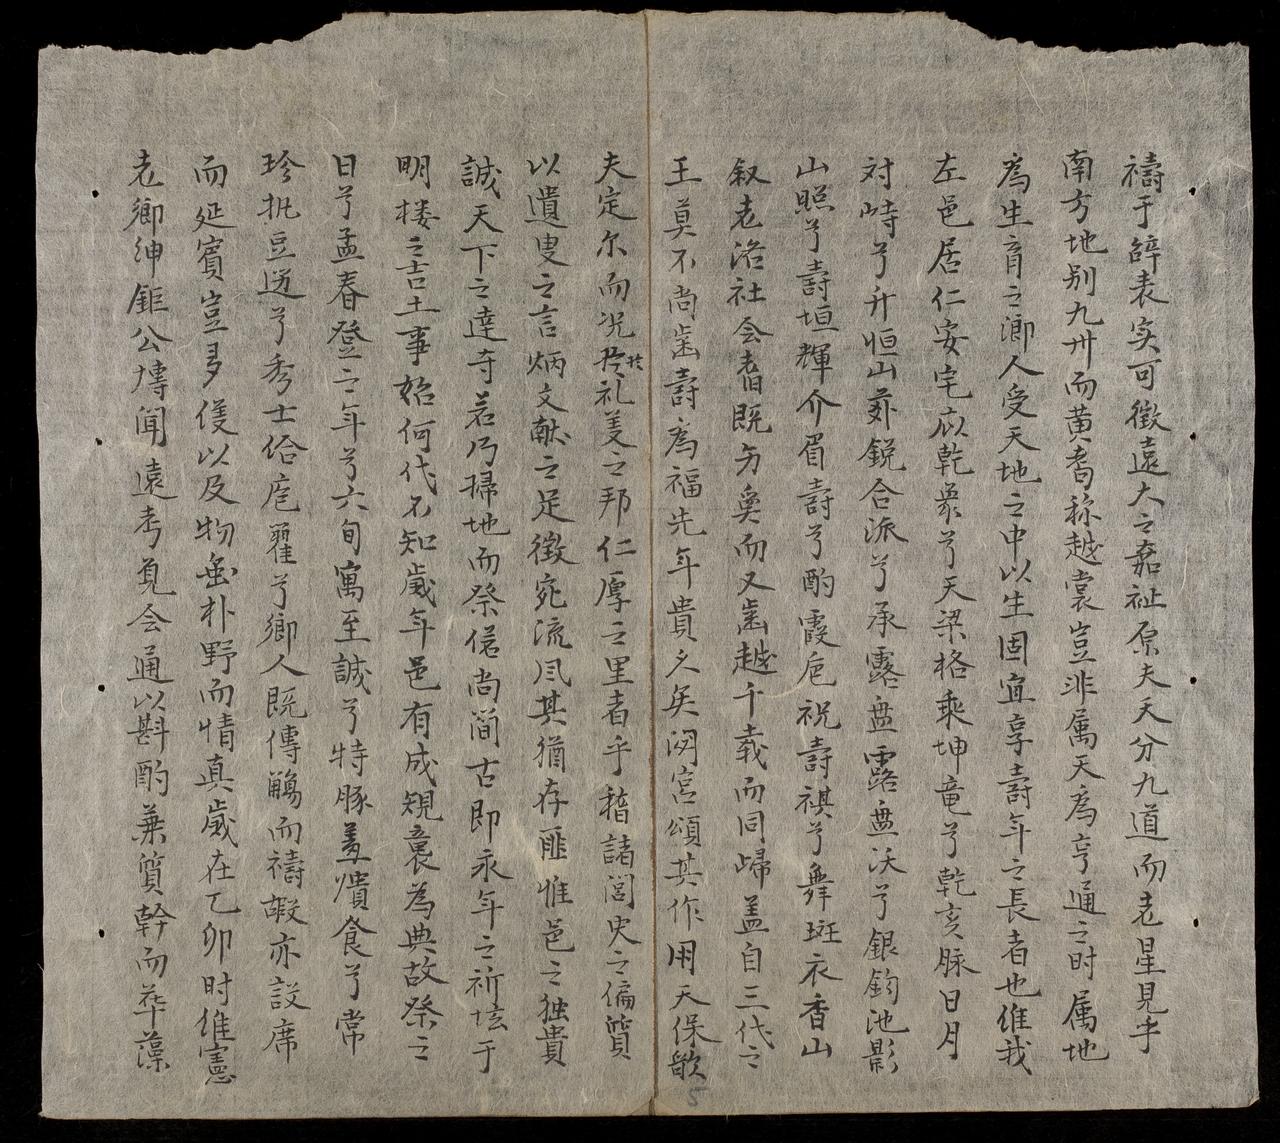 禱于辭表实可徵遠大之嘉祉原夫天分九道而老星見乎
南方地别九卅而黄耉称越裳豈非属天為亨通之时属地
為生育之鄉人受天地之中以生固宜享壽年之長者也维我
左邑居仁安宅应乾象兮天梁格乘坤竜兮乾亥脉日月
对峙兮升恒山薪鋭合派兮承露盘露盘沃兮銀鈎池影
山照兮壽垣輝介眉壽兮酌霞卮祝壽祺兮舞斑衣香山
叙老洛社会耆既为奐而又齒越千载而同歸盖自三代之
王莫不尚齒壽為福先年貴久矣閟宫頌其作用天保歌
夫定尔而况於礼羙之邦仁厚之里者乎稽諸闾史之偏質
以遺叟之言炳文献之足徵宛流风其猶存匪惟邑之独貴
誠天下之達夸若乃掃地而祭偌尚简古即永年之祈坛于
明楼之吉土事始何代不知歲年邑有成规裏為典故祭之
日兮孟春登之年兮六旬寓至誠兮特豚羞燌食兮常
珍执豆迓兮秀士佁卮罍兮鄉人既傳觴而禱嘏亦設席
而延賓豈多儀以及物垂朴野而情真歲在乙卯时维憲
老鄉紳鉅公博闻遠考覓会通以斟酌兼質幹而華藻
5